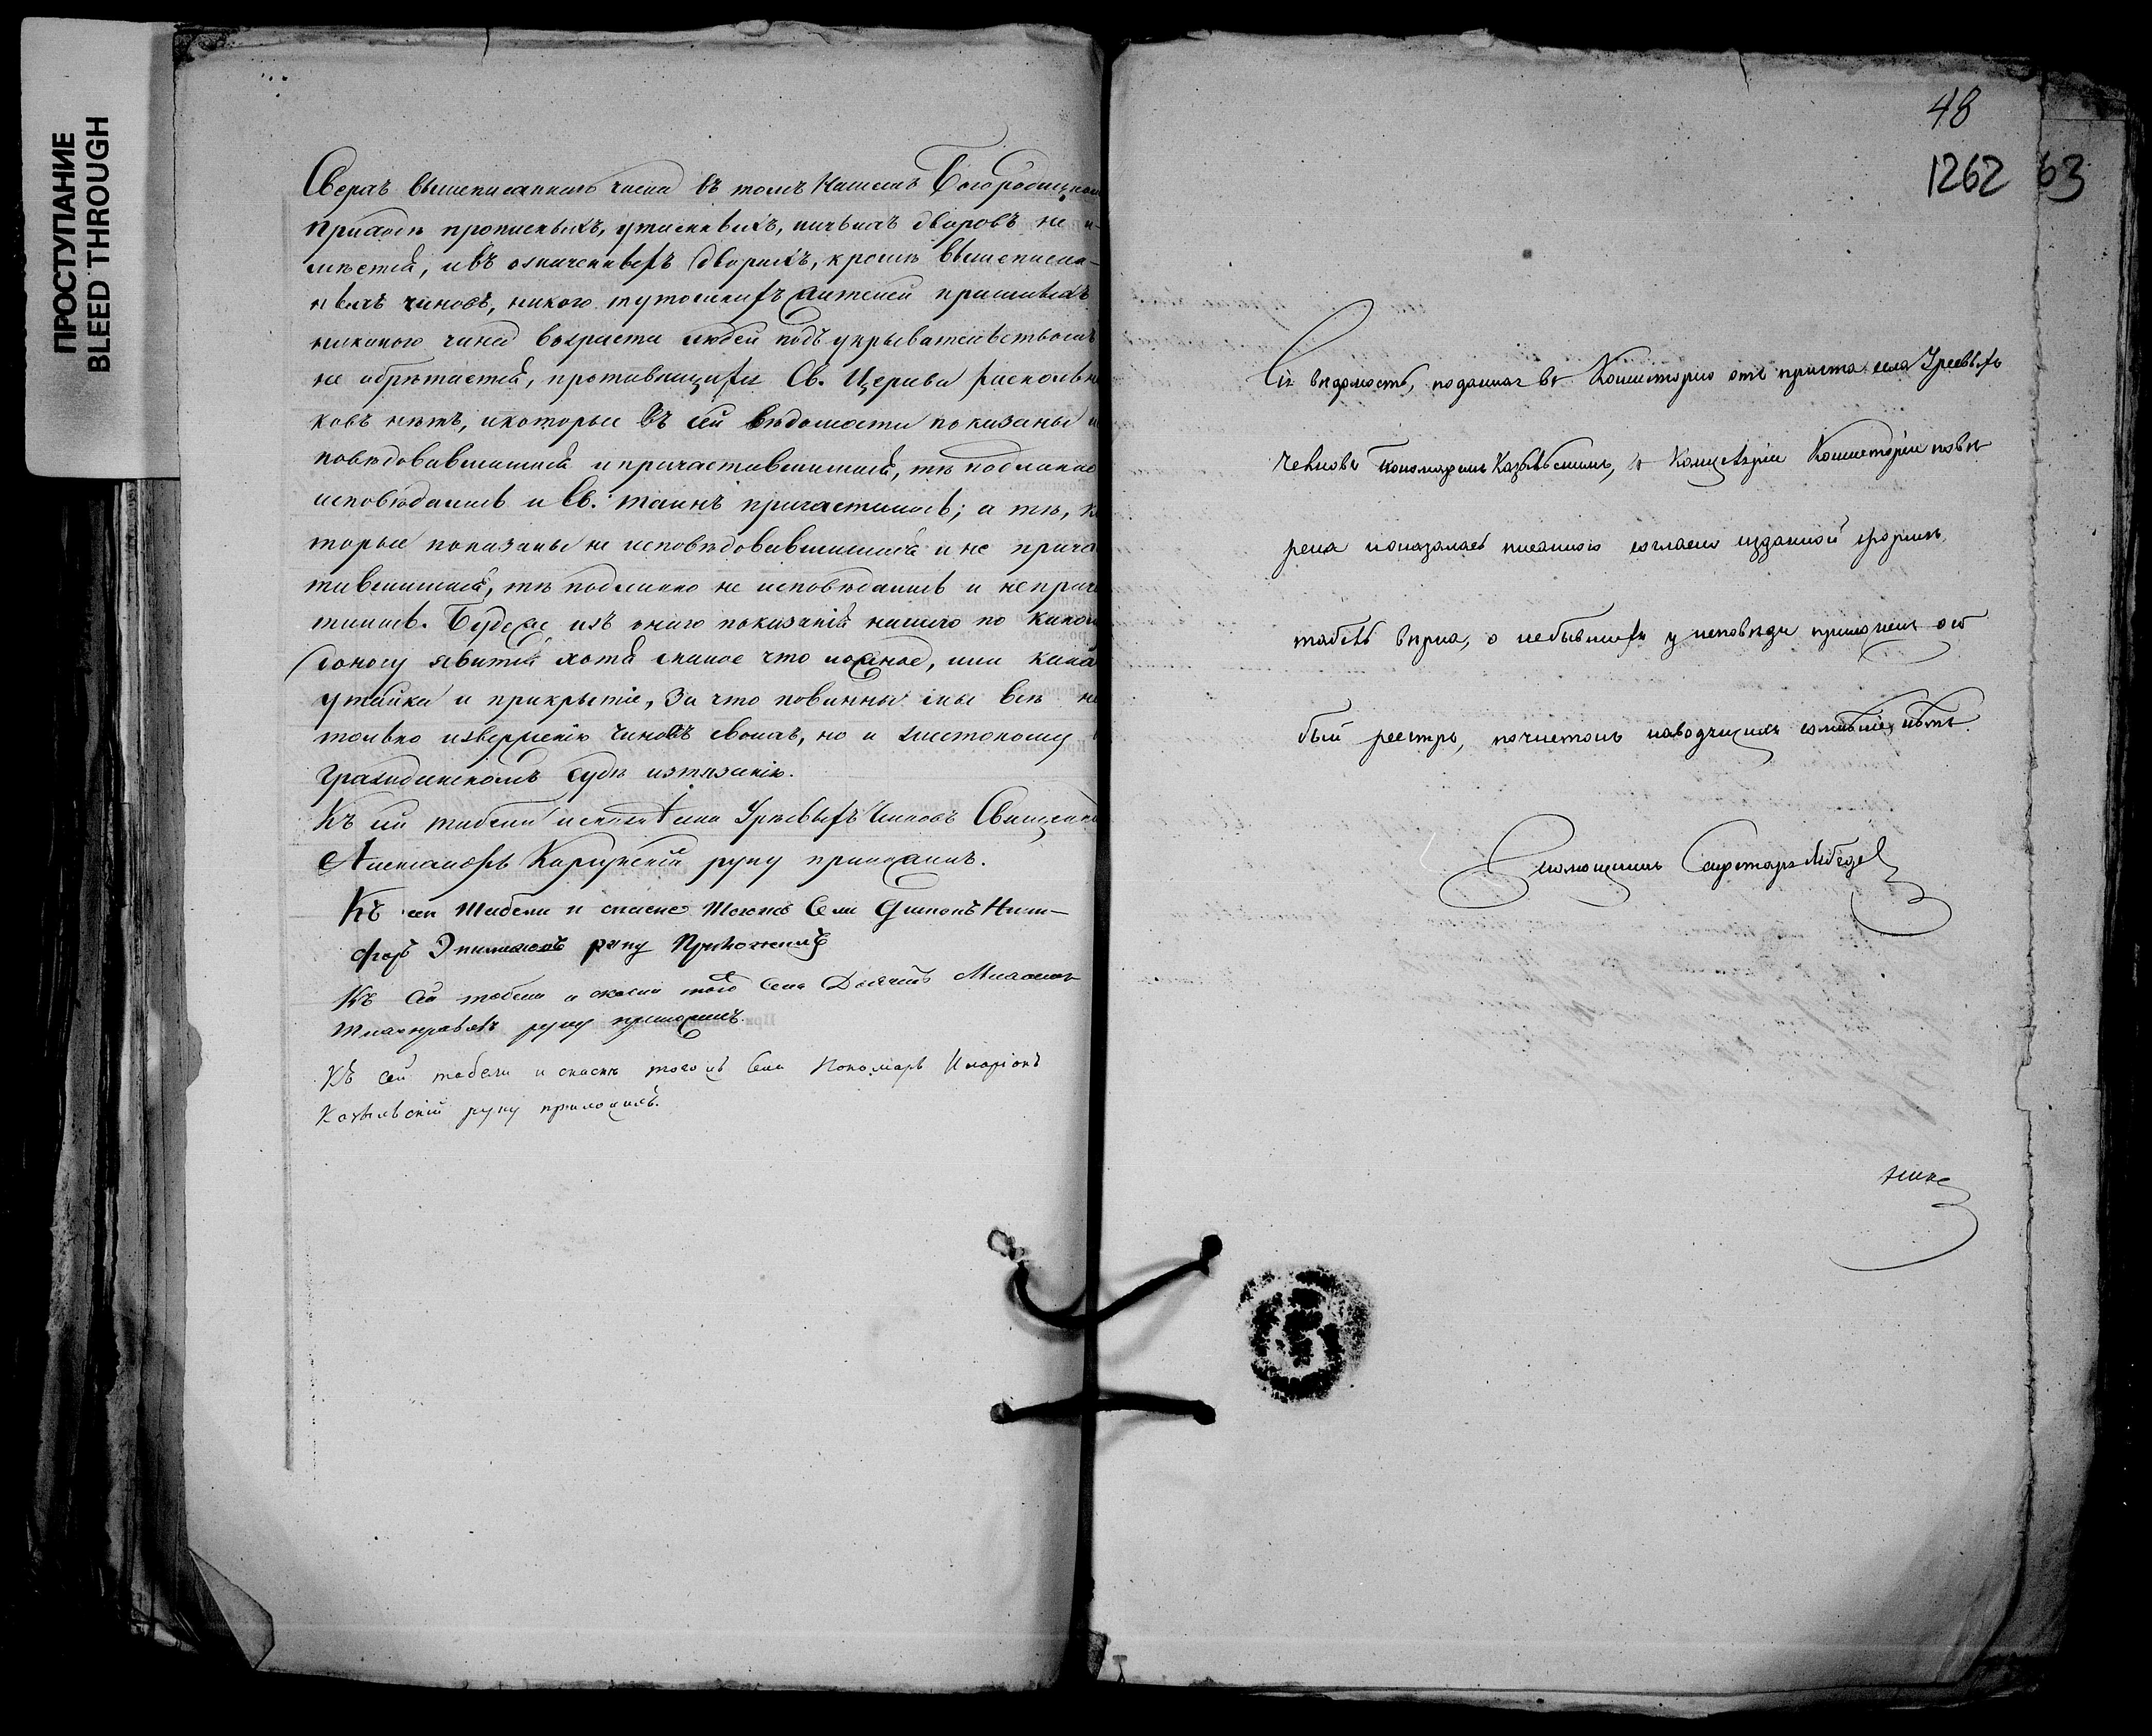 ПРОСТУПАНИЕ
BLEED THROUGH
Сверхъ вышеписаннаго числа въ томъ нашемъ Богородицком
приходѣ прописныхъ, утаенныхъ, ничьихъ дворовъ не и-
мѣется, и въ означенныхъ дворахъ, кромѣ вышеписан-
ныхъ чиновъ, никого тутошнихъ жителей пришлыхъ
никакого чина возраста людей подъ укрывательствомъ
не обрѣтается, противящихся Св. Церкви раскольни
ковъ нѣтъ, и которые въ сей вѣдомости показаны и
повѣдовавшимися и причастившимися, тѣ подлинно
исповѣдались и Св. таинъ причастились; а тѣ, ко
торые показаны не исповѣдовавшимися и не прича
тившимися, тѣ подлинно не исповѣдались и не прича
тились. Будеже изъ онаго показанія нашего по какому
доносу явится хотя малое что ложное, или кака
утайка и прикрытіе, за что повинны мы все не
только изверженію чиновъ своихъ, но и жестокому
гражданскомъ судѣ истязанію.
Къ сей табели и села Священни
Александръ руку приложилъ.
Къ сей табели и списке тогожъ Села Ники-
форъ руку Приложилъ
Къ сей табели и того Села Дьячекъ
руку приложилъ.
Къ сей табели и списку тогожъ Села Пономарь Иларіонъ
Козельскій руку приложилъ.
48
1262 63
Сія вѣдомость, поданная въ Консисторію отъ причта села
Пономаремъ Козельскимъ, Консисторіи повѣ
рена и оказалась писанною согласно изданной формѣ,
табель вѣрна, о небывшихъ у исповѣди приложенъ осо
бый реестръ,
Секретарь